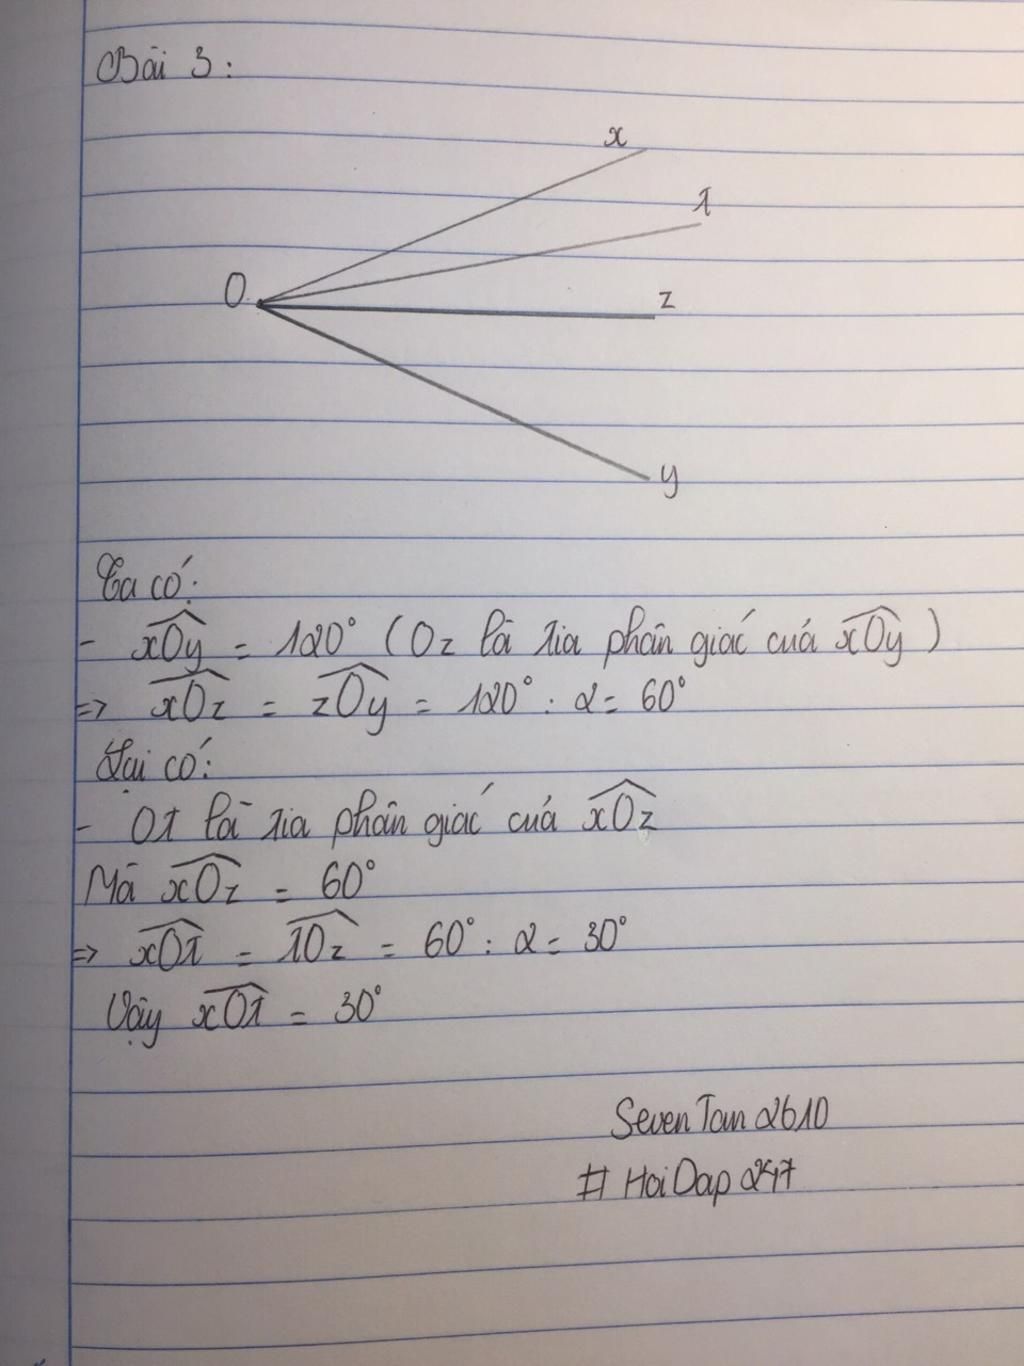 Bài 3:
x
t
O
z
y
Ta có:
- xOy = 120° (Oz là tia phân giác của xOy)
=> xOz = zOy = 120° : 2 = 60°
Lại có:
- Ot là tia phân giác của xOz
Mà xOz = 60°
=> xOt = tOz = 60° : 2 = 30°
Vậy xOt = 30°
SevenTam2610
# HoiDap247